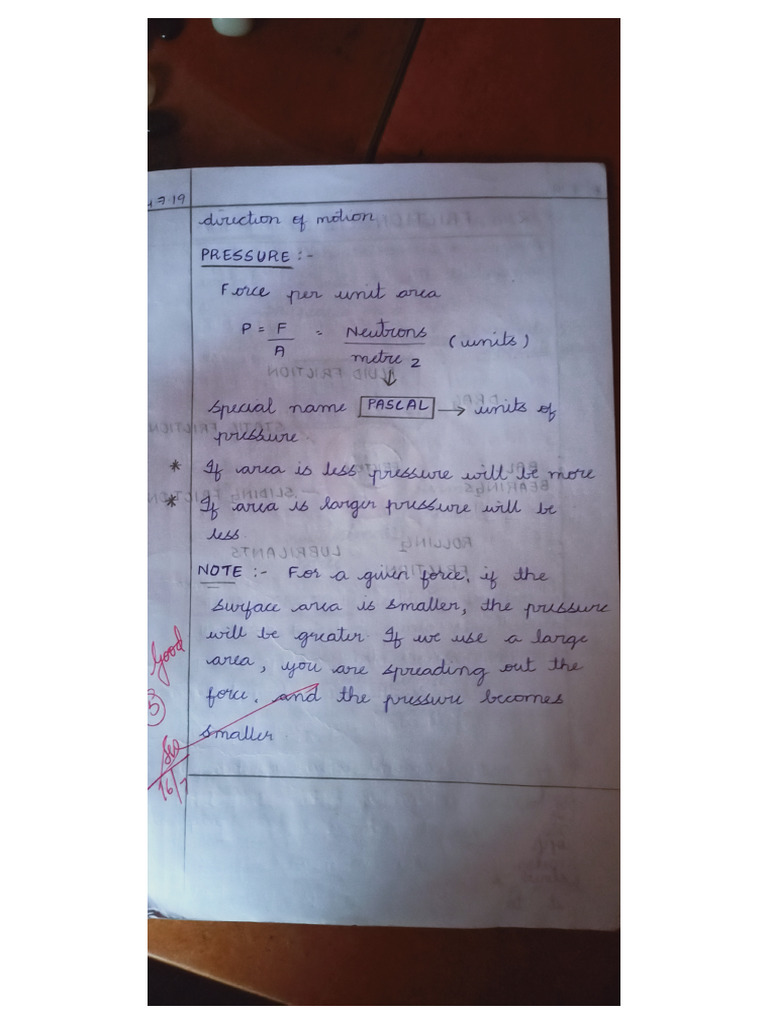 7.19
direction of motion.
PRESSURE :-
Force per unit area
P = F/A = Neutrons/metre 2 (units)
↓
special name PASCAL → units of
pressure.
* If area is less pressure will be more
* If area is larger pressure will be
less.
NOTE :- For a given force, if the
surface area is smaller, the pressure
will be greater. If we use a large
area, you are spreading out the
force. and the pressure becomes
smaller.
Good
16/7